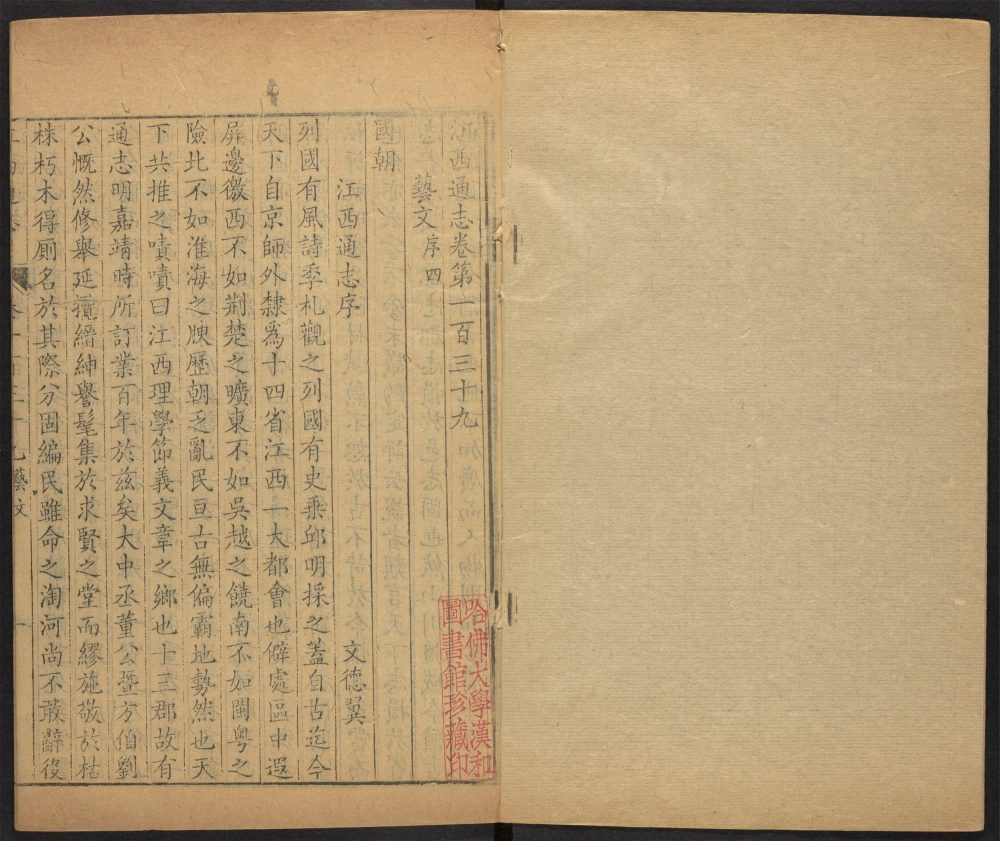 江西通志卷第一百三十九
藝文 序四
國朝
江西通志序 文德翼
列國有風詩季札觀之列國有史乗邱明採之蓋自古迄今
天下自京師外隸爲十四省江西一大都會也僻處區中遐
屏邊徼西不如荆楚之曠東不如吳越之饒南不如閩粤之
險北不如淮海之腴歷朝乏亂民亘古無偏霸地勢然也天
下共推之嘖嘖曰江西理學節義文章之鄉也十三郡故有
通志明嘉靖時所訂業百年於兹矣大中丞董公曁方伯劉
公慨然修舉延攬縉紳譽髦集於求賢之堂而繆施敬於枯
株朽木得厠名於其際分固編民雖命之淘河尚不敢辭役
卷一百三十九 藝文 一
哈佛大學漢和
圖書館珍藏印